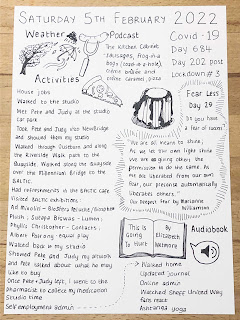 SATURDAY 5TH FEBRUARY 2022
Weather
Podcast
The Kitchen Cabinet
Sausages, frog-in-a-
boys (toad-in-a-hole)
crème brûlée and
crème caramel, pizza
Covid-19
Day 684
Day 202 post
Lockdown # 3
Activities
House jobs
Walked to the studio
Met Pete and Judy at the studio
car park
Took Pete and Judy into Newbridge
and showed them my studio
Walked through Quayside and along
the Riverside Walk path to the
Quayside. Walked along the Quayside
over the Millennium Bridge to the
Baltic.
Had refreshments in the Baltic Cafe
Visited Baltic exhibitions:
Phyllis Christopher - Contacts;
Albert Potrony - equal play
Walked back to my studio
Showed Pete and Judy my artwork
and Pete talked about what he may
like to buy
Once Pete + Judy left, I went to the
pharmacist to collect my medication
Studio time
Self employment admin
Fear Less
Day 29
Do you have
a fear of
"We are all meant to shine;
As we let our own light shine
we are giving others the
permission to do the same. As
we are liberated from our own
fear, our presence automatically
liberates others."
Our Deepest Fear by Marianne
Williamson
This is
Going
To Hurt
By
Elizabeth
Audiobook
Walked home
Updated Journal
Online admin
Watched Sheff United Way
fans react
Ashtanga yoga